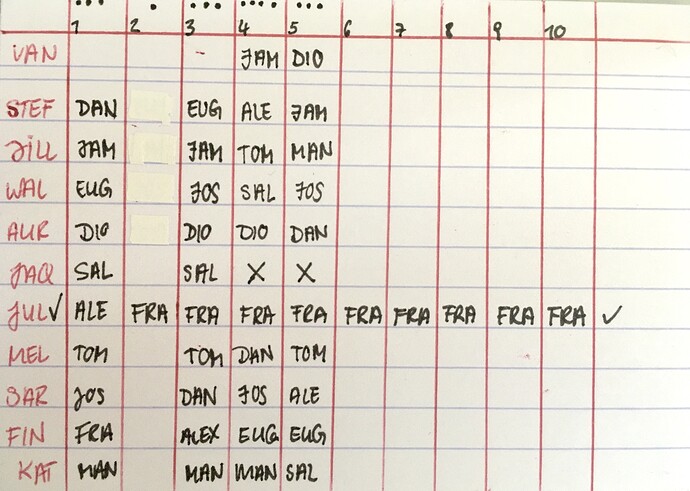 1 2 3 4 5 6 7 8 9 10
VAN - JAM DIO
STEF DAN EUG ALE JAM
JILL JAM JAM TOM MAN
WAL EUG JOS SAL JOS
AUR DIO DIO DIO DAN
JAQ SAL SAL X X
JUL ✓ ALE FRA FRA FRA FRA FRA FRA FRA FRA FRA ✓
MEL TOM TOM DAN TOM
SAR JOS DAN JOS ALE
FIN FRA ALEX EUG EUG
KAT MAN MAN MAN SAL